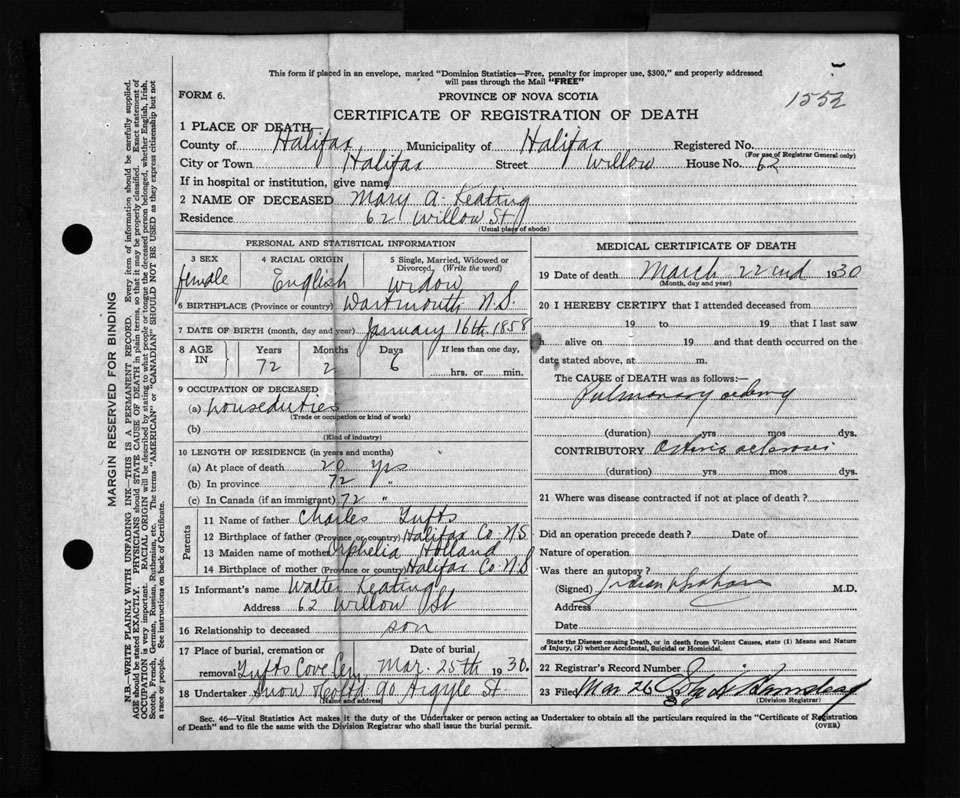 This form if placed in an envelope, marked "Dominion Statistics—Free, penalty for improper use, $300," and properly addressed
will pass through the Mail "FREE"
FORM 6.
PROVINCE OF NOVA SCOTIA
1552
CERTIFICATE OF REGISTRATION OF DEATH
1 PLACE OF DEATH
County of Halifax Municipality of Halifax Registered No.
(For use of Registrar General only)
City or Town Halifax Street Willow House No. 62
If in hospital or institution, give name
2 NAME OF DECEASED Mary A. Keating
Residence 62 Willow St
(Usual place of abode)
PERSONAL AND STATISTICAL INFORMATION
3 SEX 4 RACIAL ORIGIN 5 Single, Married, Widowed or
Divorced, (Write the word)
female English widow
6 BIRTHPLACE (Province or country) Dartmouth N.S.
7 DATE OF BIRTH (month, day and year) January 16th 1858
8 AGE IN Years Months Days If less than one day,
72 2 6 hrs. or min.
9 OCCUPATION OF DECEASED
(a) houseduties
(Trade or occupation or kind of work)
(b)
(Kind of industry)
10 LENGTH OF RESIDENCE (in years and months)
(a) At place of death 20 yrs
(b) In province 72 "
(c) In Canada (if an immigrant) 72 "
Parents
11 Name of father Charles Tufts
12 Birthplace of father (Province or country) Halifax Co. N.S.
13 Maiden name of mother Ophelia Holland
14 Birthplace of mother (Province or country) Halifax Co. N.S
15 Informant's name Walter Keating
Address 62 Willow St
16 Relationship to deceased son
17 Place of burial, cremation or Date of burial
removal Tufts Cove Cem Mar. 25th 1930.
18 Undertaker Snow & Co Ltd 90 Argyle St.
(Name and address)
MEDICAL CERTIFICATE OF DEATH
19 Date of death March 22nd 1930
(Month, day and year)
20 I HEREBY CERTIFY that I attended deceased from
19 to 19 that I last saw
h alive on 19 and that death occurred on the
date stated above, at m.
The CAUSE of DEATH was as follows:—
Pulmonary
(duration) yrs mos dys.
CONTRIBUTORY
(duration) yrs mos dys.
21 Where was disease contracted if not at place of death?
Did an operation precede death? Date of
Nature of operation
Was there an autopsy?
(Signed) M.D.
Address
Date
State the Disease causing Death, or in death from Violent Causes, state (1) Means and Nature
of Injury, (2) whether Accidental, Suicidal or Homicidal.
22 Registrar's Record Number
23 Filed Mar 26 19
(Division Registrar)
Sec. 46—Vital Statistics Act makes it the duty of the Undertaker or person acting as Undertaker to obtain all the particulars required in the "Certificate of Registration
of Death" and to file the same with the Division Registrar who shall issue the burial permit.
(OVER)
MARGIN RESERVED FOR BINDING
N.B.—WRITE PLAINLY WITH UNFADING INK—THIS IS A PERMANENT RECORD. Every item of information should be carefully supplied.
AGE should be stated EXACTLY. PHYSICIANS should STATE CAUSE OF DEATH in plain terms, so that it may be properly classified. Exact statement of
OCCUPATION is very important. RACIAL ORIGIN will be described by stating to what people or tongue the deceased person belonged, whether English, Irish,
Scotch, French, German, Russian, Ruthenian, etc. The terms "AMERICAN" or "CANADIAN" SHOULD NOT BE USED as they express citizenship but not
a race or people. See instructions on back of Certificate.